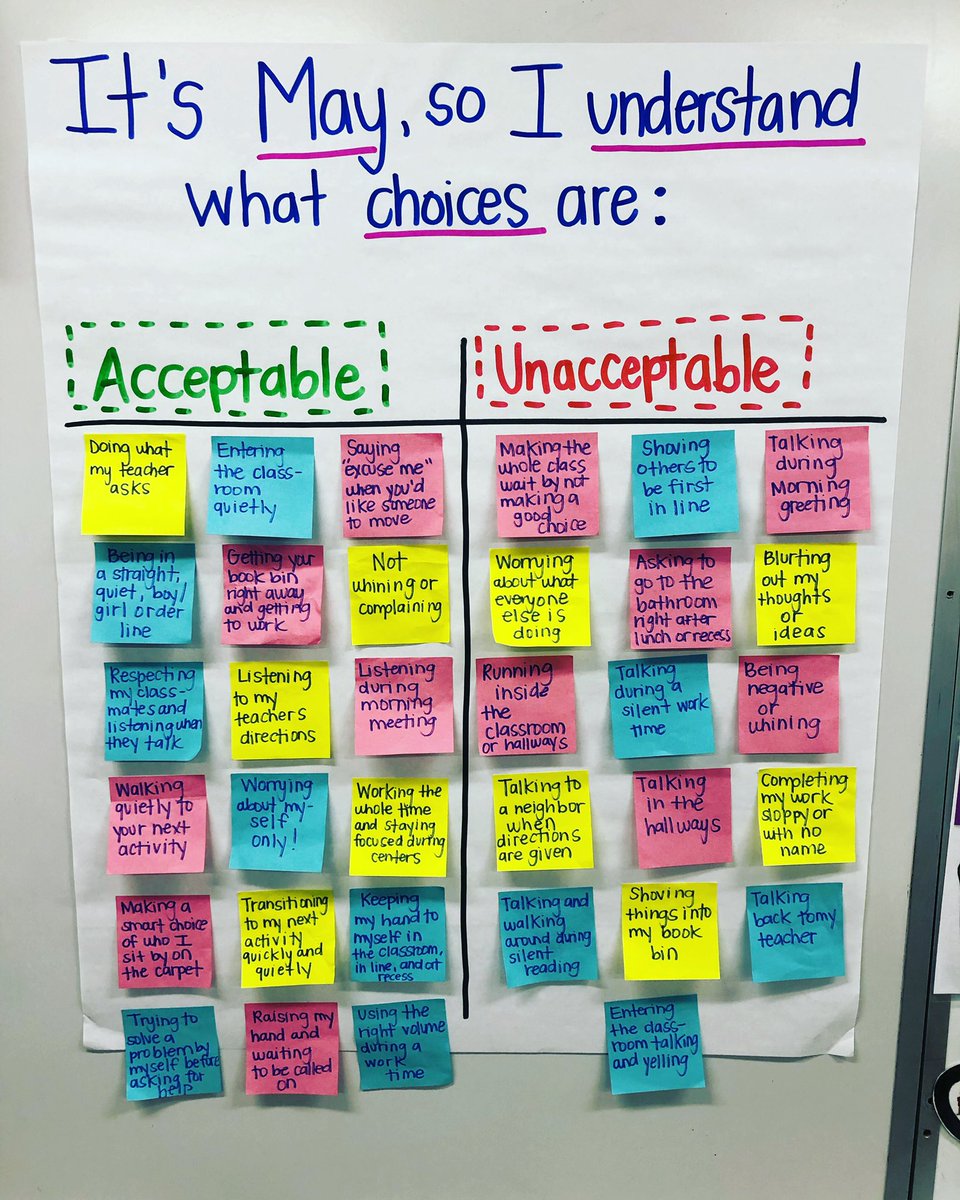 It's May, so I understand
what choices are:
Acceptable
Unacceptable
Doing what
my teacher
asks
Entering
the class-
room
quietly
Saying
"excuse me"
when you'd
like someone
to move
Being in
a straight,
quiet, boy/
girl order
line
Getting your
book bin
right away
and getting
to work
Not
whining or
complaining
Respecting
my class-
mates and
listening when
they talk
Listening
to my
teachers
directions
Listening
during
morning
meeting
Walking
quietly to
your next
activity
Worrying
about my-
self
only!
Working the
whole time
and staying
focused during
centers
Making a
smart choice
of who I
sit by on
the carpet
Transitioning
to my next
activity
quickly and
quietly
Keeping
my hand to
myself in
the classroom,
in line, and at
recess
Trying to
solve a
problem by
myself before
asking for
help
Raising my
hand and
waiting
to be called
on
Using the
right volume
during a
work
time
Making the
whole class
wait by not
making a
good
choice
Shoving
others to
be first
in line
Talking
during
Morning
greeting
Worrying
about what
everyone
else is
doing
Asking to
go to the
bathroom
right after
lunch or recess
Blurting
out my
thoughts
or
ideas
Running
inside
the
classroom
or hallways
Talking
during a
silent work
time
Being
negative
or
whining
Talking to
a neighbor
when
directions
are given
Talking
in the
hallways
Completing
my work
sloppy or
with no
name
Talking and
walking
around during
silent
reading
Shoving
things into
my book
bin
Talking
back to my
teacher
Entering
the class-
room talking
and yelling